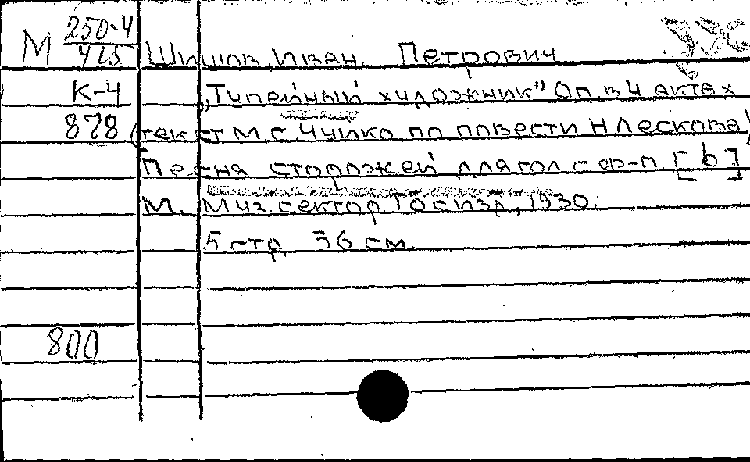 М 250-4
425 Шишов, Иван Петрович
К-4 „Тупейный художник" Оп. в 4 актах
878 (текст М.С. Чуйко по повести Н Лескова)
Песня сторожей для гол с ф-п [b]
М. Муз. сектор Госизд, 1930.
5 стр. 36 см.
800